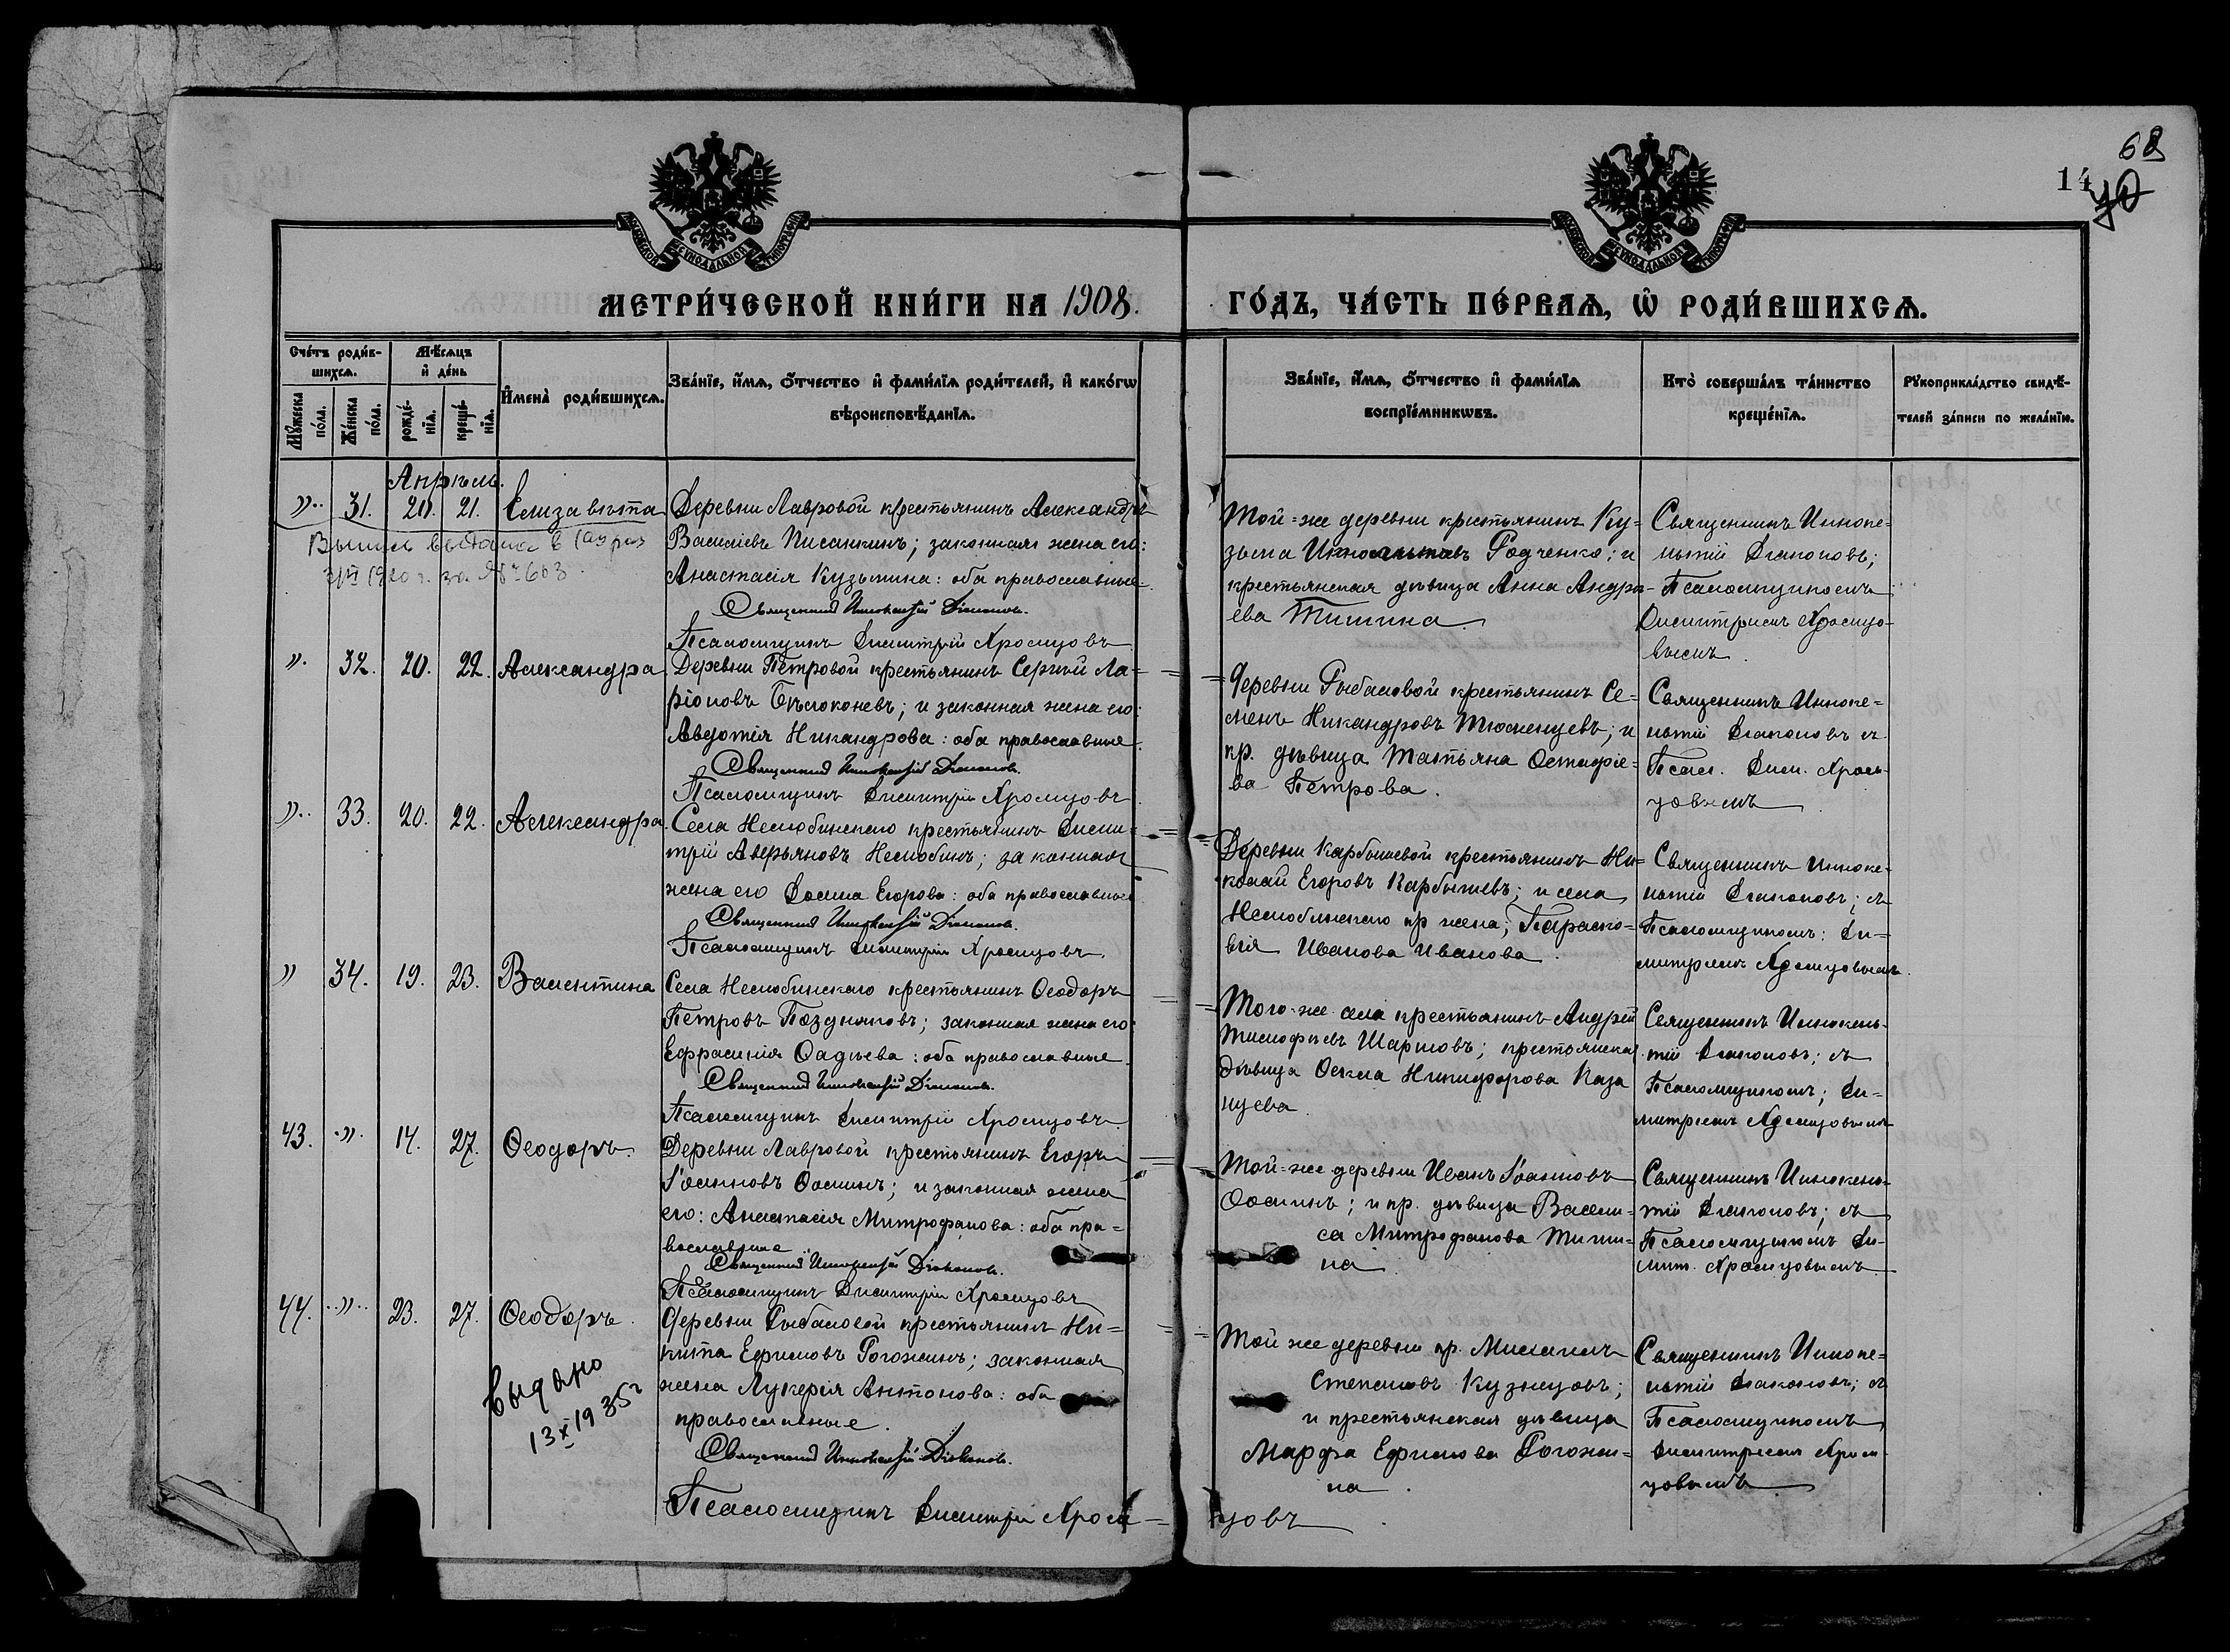 68
14
70
МЕТРИ́ЧЕСКОЙ КНИ́ГИ НА 1908.
ГО́ДЪ, ЧА́СТЬ ПЕ́РВАѦ, Ѡ РОДИ́ВШИХСѦ.
Сче́тъ роди́в-
шихсѧ.
Мѣ́сѧцъ
и де́нь
Мꙋ́жеска
по́ла.
Же́нска
по́ла.
рожде́-
нїѧ.
креще́-
нїѧ.
Имена̀ роди́вшихсѧ.
Зва́нїе, и́мѧ, ѻ́тчество и фами́лїѧ роди́телей, и како́гѡ
вѣроисповѣ́данїѧ.
Зва́нїе, и́мѧ, ѻ́тчество и фами́лїѧ
воспрїе́мникѡвъ.
Кто̀ соверша́лъ та́инство
креще́нїѧ.
Рꙋкоприкла́дство свидѣ́-
телей за́писи по жела́нїю.
Апрѣль.
" 31. 20. 21. Елизавета
Деревни Лавровой крестьянинъ Александръ
Васильевъ Писанкинъ; законная жена его:
Анастасія Кузьмина: оба православные.
Священникъ Иннокентій Діаконовъ.
Псаломщикъ Димитрій Хромцовъ
Выпись выдана в
1920 г. за № 603.
Той-же деревни крестьянинъ Ку-
зьма Родченко; и
крестьянская дѣвица Анна Андре-
ева Тишина
Священникъ Инноке-
нтій Діаконовъ;
Псаломщикомъ
Димитріемъ Хромцо-
вымъ.
" 32. 20. 22. Александра.
Деревни Петровой крестьянинъ Сергій Ла-
ріоновъ Бѣлоконевъ; и законная жена его:
Авдотія Никандрова: оба православные.
Священникъ Иннокентій Діаконовъ.
Псаломщикъ Димитрій Хромцовъ
Деревни Рыбаловой крестьянинъ Се-
менъ Никандровъ Тюменцевъ; и
кр. дѣвица Татьяна Остафіе-
ва Петрова.
Священникъ Инноке-
нтій Діаконовъ съ
Псал. Дим. Хром-
цовымъ
" 33. 20. 22. Александра.
Села Нелюбинскаго крестьянинъ Дими-
трій Аверьяновъ Нелюбинъ; законная
жена его Домна Егорова: оба православные
Священникъ Иннокентій Діаконовъ.
Псаломщикъ Димитрій Хромцовъ.
Деревни Карбышевой крестьянинъ Ни-
колай Егоровъ Карбышевъ; и села
Нелюбинскаго кр жена; Параско-
вія Иванова Иванова.
Священникъ Инноке-
нтій Діаконовъ; съ
Псаломщикомъ: Ди-
митріемъ Хромцовымъ.
" 34. 19. 23. Валентина
Села Нелюбинскаго крестьянинъ Ѳеодоръ
Петровъ Поздняковъ; законная жена его:
Ефрасинія Фадѣева: оба православные
Священникъ Иннокентій Діаконовъ.
Псаломщикъ Димитрій Хромцовъ
Того-же села крестьянинъ Андрей
Тимофѣевъ Шариловъ; крестьянская
дѣвица Ѳекла Никифорова Каза
нцева.
Священникъ Иннокен-
тій Діаконовъ; съ
Псаломщикомъ; Ди-
митріемъ Хромцовымъ
43. " 14. 27. Ѳеодоръ.
Деревни Лавровой крестьянинъ Егоръ
Іоанновъ Ѳоминъ; и законная жена
его: Анастасія Митрофанова: оба пра-
вославные
Священникъ Иннокентій Діаконовъ.
Псаломщикъ Димитрій Хромцовъ
Той-же деревни Иванъ Іоанновъ
Ѳоминъ; и кр. дѣвица Васили-
са Митрофанова Тиши-
на.
Священникъ Иннокен-
тій Діаконовъ; съ
Псаломщикомъ Ди-
мит. Хромцовымъ
44. " 23. 27. Ѳеодоръ.
Деревни Рыбаловой крестьянинъ Ни-
кита Ефимовъ Рогожинъ; законная
жена Лукерія Антонова: оба
православные.
Священникъ Иннокентій Діаконовъ.
выдано
13 X 1935 г
Той же деревни кр. Михаилъ
Степановъ Кузнецовъ;
и крестьянская дѣвица
Марфа Ефимова Рогожи-
на.
Священникъ Инноке-
нтій Діаконовъ; съ
Псаломщикомъ
Димитріемъ Хром-
цовымъ
Псаломщикъ Димитрій Хром-
цовъ